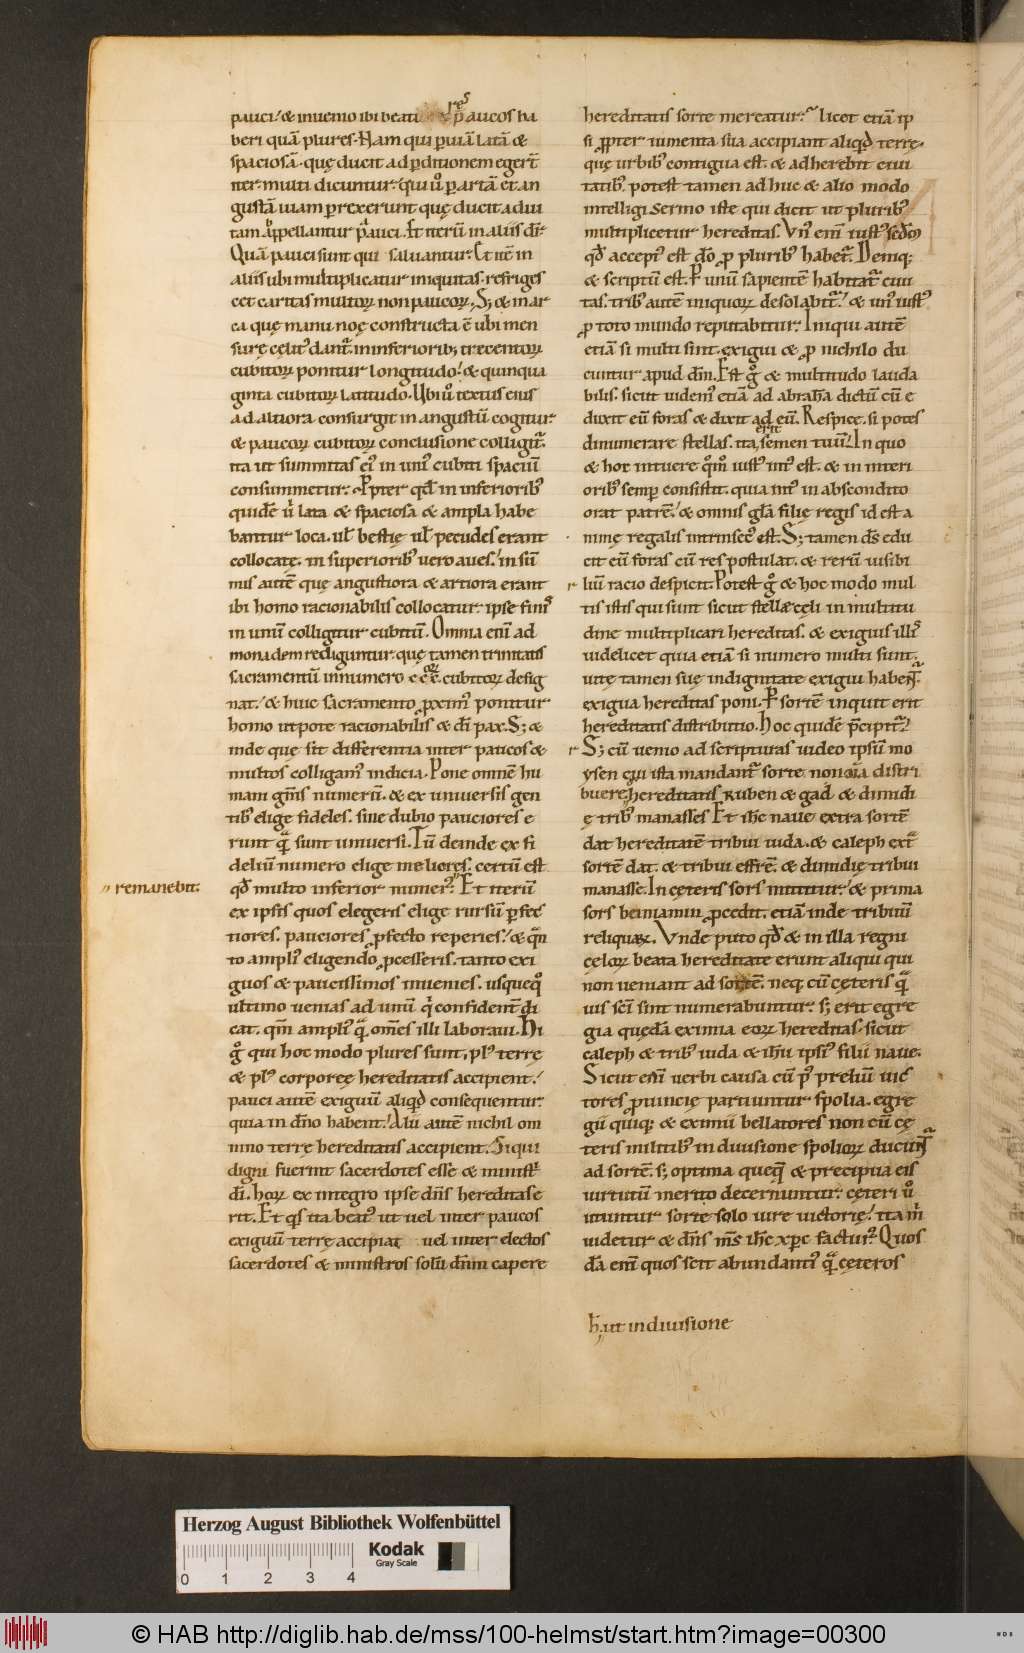 pauci. & inuenio ibi beati res paucos ha
beri quā plures. Nam qui p uiā latā &
spaciosā. quę ducit ad pditionem egert̄
iter. multi dicuntur. qui ů p artā et an
gustā uiam prexerunt quę ducit ad ui
tam appellantur pauci. Et iterū in aliis dr̄.
Quā pauci sunt qui saluantur. Et itē in
aliis ubi multiplicatur iniquitas. refriges
cet caritas multoꝝ non paucoꝝ. S; & in ar
ca quę manu noę constructa ē ubi men
surę cęlitꝰ dant᷑. in inferiorib; trecentoꝝ
cubitoꝝ ponitur longitudo. & quinqua
ginta cubitoꝝ latitudo. Ubi ů textus eius
ad altiora consurgit in angustū cogitur.
& paucoꝝ cubitoꝝ conclusione colligit᷑.
ita ut summitas eiꝰ in uniꝰ cubiti spaciū
consummetur. Ppter qd̄ in inferioribꝰ
quidē ů lata & spaciosa & ampla habe
bantur loca. ul̄ bestię ul̄ pecudes erant
collocatę. in superioribꝰ uero aues. in sū
mis autē quę angustiora & artiora erant
ibi homo racionabilis collocatur. ipse finiꝰ
in unū colligitur cubitū. Omnia eni ad
monadem rediguntur. quę tamen trinitatis
sacramentū in numero ccc.oꝝ cubitoꝝ desig
nat. & huic sacramento proximꝰ ponitur
homo utpote racionabilis & di pax. S; &
inde quę sit differentia inter paucos &
multos colligamꝰ indicia. Pone omnē hu
mani gn̄is numerū. & ex uniuersis gen
tibꝰ elige fideles. sine dubio pauciores e
runt quā sunt uniuersi. Tū deinde ex fi
deliū numero elige meliores. certū est
qd̄ multo inferior numerꝰ. Et iterū
remanebit.
ex ipsis quos elegeris elige rursū pfec
tiores. pauciores pfecto reperies. & quan
to ampliꝰ eligendo pcesseris. tanto exi
guos & paucissimos inuenies. usquequo
ultimo uenias ad unū qui confident᷑ di
cat. qm̄ ampliꝰ quā om̄es illi laboraui. Hi
g° qui hoc modo plures sunt. plꝰ terrę
& plꝰ corporeę hereditatis accipient.
pauci autē exiguū aliqd̄ consequentur.
quia in dn̄o habent. Alii autē nichil om
nino terrę hereditatis accipient. Siqui
digni fuerint sacerdotes esse & ministri
di. hoꝝ ex integro ipse dn̄s hereditas e
rit. Et quis ita beatꝰ ut uel inter paucos
exiguū terrę accipiat uel inter electos
sacerdotes & ministros solū dn̄m capere
hereditatis sorte mereatur. licet etiā ip
si propter iumenta sua accipiant aliqd̄ terrę.
quę urbibꝰ contigua est. & adherebit ciui
tatibꝰ. potest tamen adhuc & alio modo
intelligi sermo iste qui dicit ut pluribꝰ
multiplicetur hereditas. Vnꝰ eni iustꝰ scdm
qd̄ acceptꝰ est do pro pluribꝰ habet᷑. Deniq;
& scriptū est. P unū sapientē habitat᷑ ciui
tas. tribꝰ autē iniquoꝝ desolabit᷑. & unꝰ iustꝰ
pro toto mundo reputabitur. Iniqui autē
etiā si multi sint. exigui & pro nichilo du
cuntur apud dm̄. Est g° & multitudo lauda
bilis. sicut uidemꝰ etiā ad abrahā dictū cū e
duxit eū foras & dixit ad eū. Respice. si potes
dinumerare stellas. ita erit semen tuū. In quo
& hoc intuere quomodo iustꝰ intꝰ est. & in interi
oribꝰ semp consistit. quia intꝰ in abscondito
orat patrē. & omnis gl̄a filię regis id est a
nimę regalis intrinsecꝰ est. S; tamen ds̄ edu
cit eū foras cū res postulat. & rerū uisibi
liū racio despicit. Potest g° & hoc modo mul
tis istis qui sunt sicut stellæ cęli in multitu
dine multiplicari hereditas. & exiguis illis
uidelicet quia etiā si numero multi sunt.
uitę tamen suę indignitate exigui habent᷑.
exigua hereditas poni. P sortē inquit erit
hereditatis distributio. Hoc quidē p̄cipit᷑.
S; cū uenio ad scripturas uideo ipsū mo
ysen cui ista mandant᷑ sorte non oīa distri
buere. hereditatis Ruben & gad & dimidi
ę tribꝰ manasses. Et ih̄c naue extra sortē
dat hereditatē tribui iuda. & caleph ext᷑
sortē dat. & tribui effrē. & dimidię tribui
manasse. In cęteris sors mittitur. & prima
sors beniamin procedit. etiā inde tribuū
reliquaꝝ. Vnde puto qd̄ & in illa regni
cęloꝝ beata hereditate erunt aliqui qui
non ueniant ad sortē. neq; cū cęteris quā
uis sci sint numerabuntur. s; erit egre
gia quędā eximia eoꝝ hereditas. sicut
caleph & tribꝰ iuda & ihū ipsiꝰ filii naue.
Sicut eni uerbi causa cū pꝰ preliū uic
tores prouincię partiuntur spolia. egre
gii quiq; & eximii bellatores non cū cę
teris militibꝰ in diuisione spolioꝝ ducunt᷑
ad sortē. s; optima queq; & precipua eis
uirtutū merito decernuntur. cęteri ů
utuntur sorte solo iure uictorię. ita mi
uidetur & dn̄s m̄s ih̄c xp̄c facturꝰ. Quos
dā eni quos scit abundantiꝰ quā cęteros
h̄. ut in diuisione
Herzog August Bibliothek Wolfenbüttel
Kodak
Gray Scale
0 1 2 3 4
© HAB http://diglib.hab.de/mss/100-helmst/start.htm?image=00300